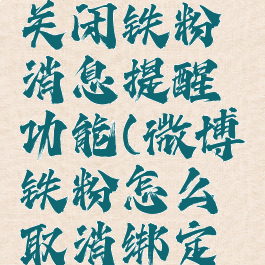 关闭铁粉
消息提醒
功能(微博
铁粉怎么
取消绑定